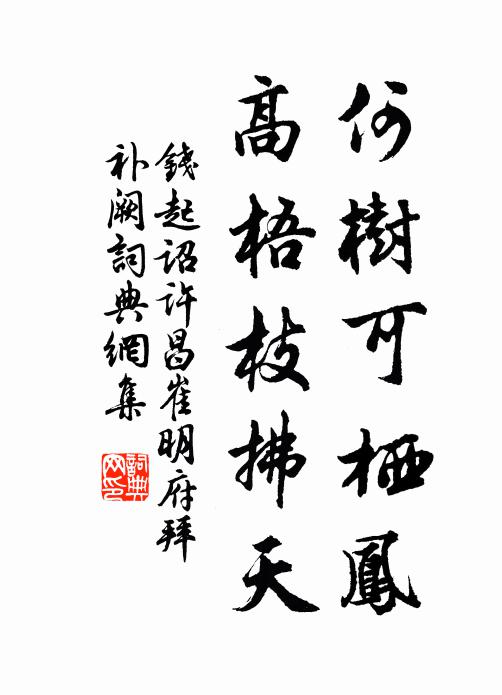 何樹可栖鳳
高梧枝拂天
錢起詔許昌崔明府拜
补阙詞典網集
詞典網印